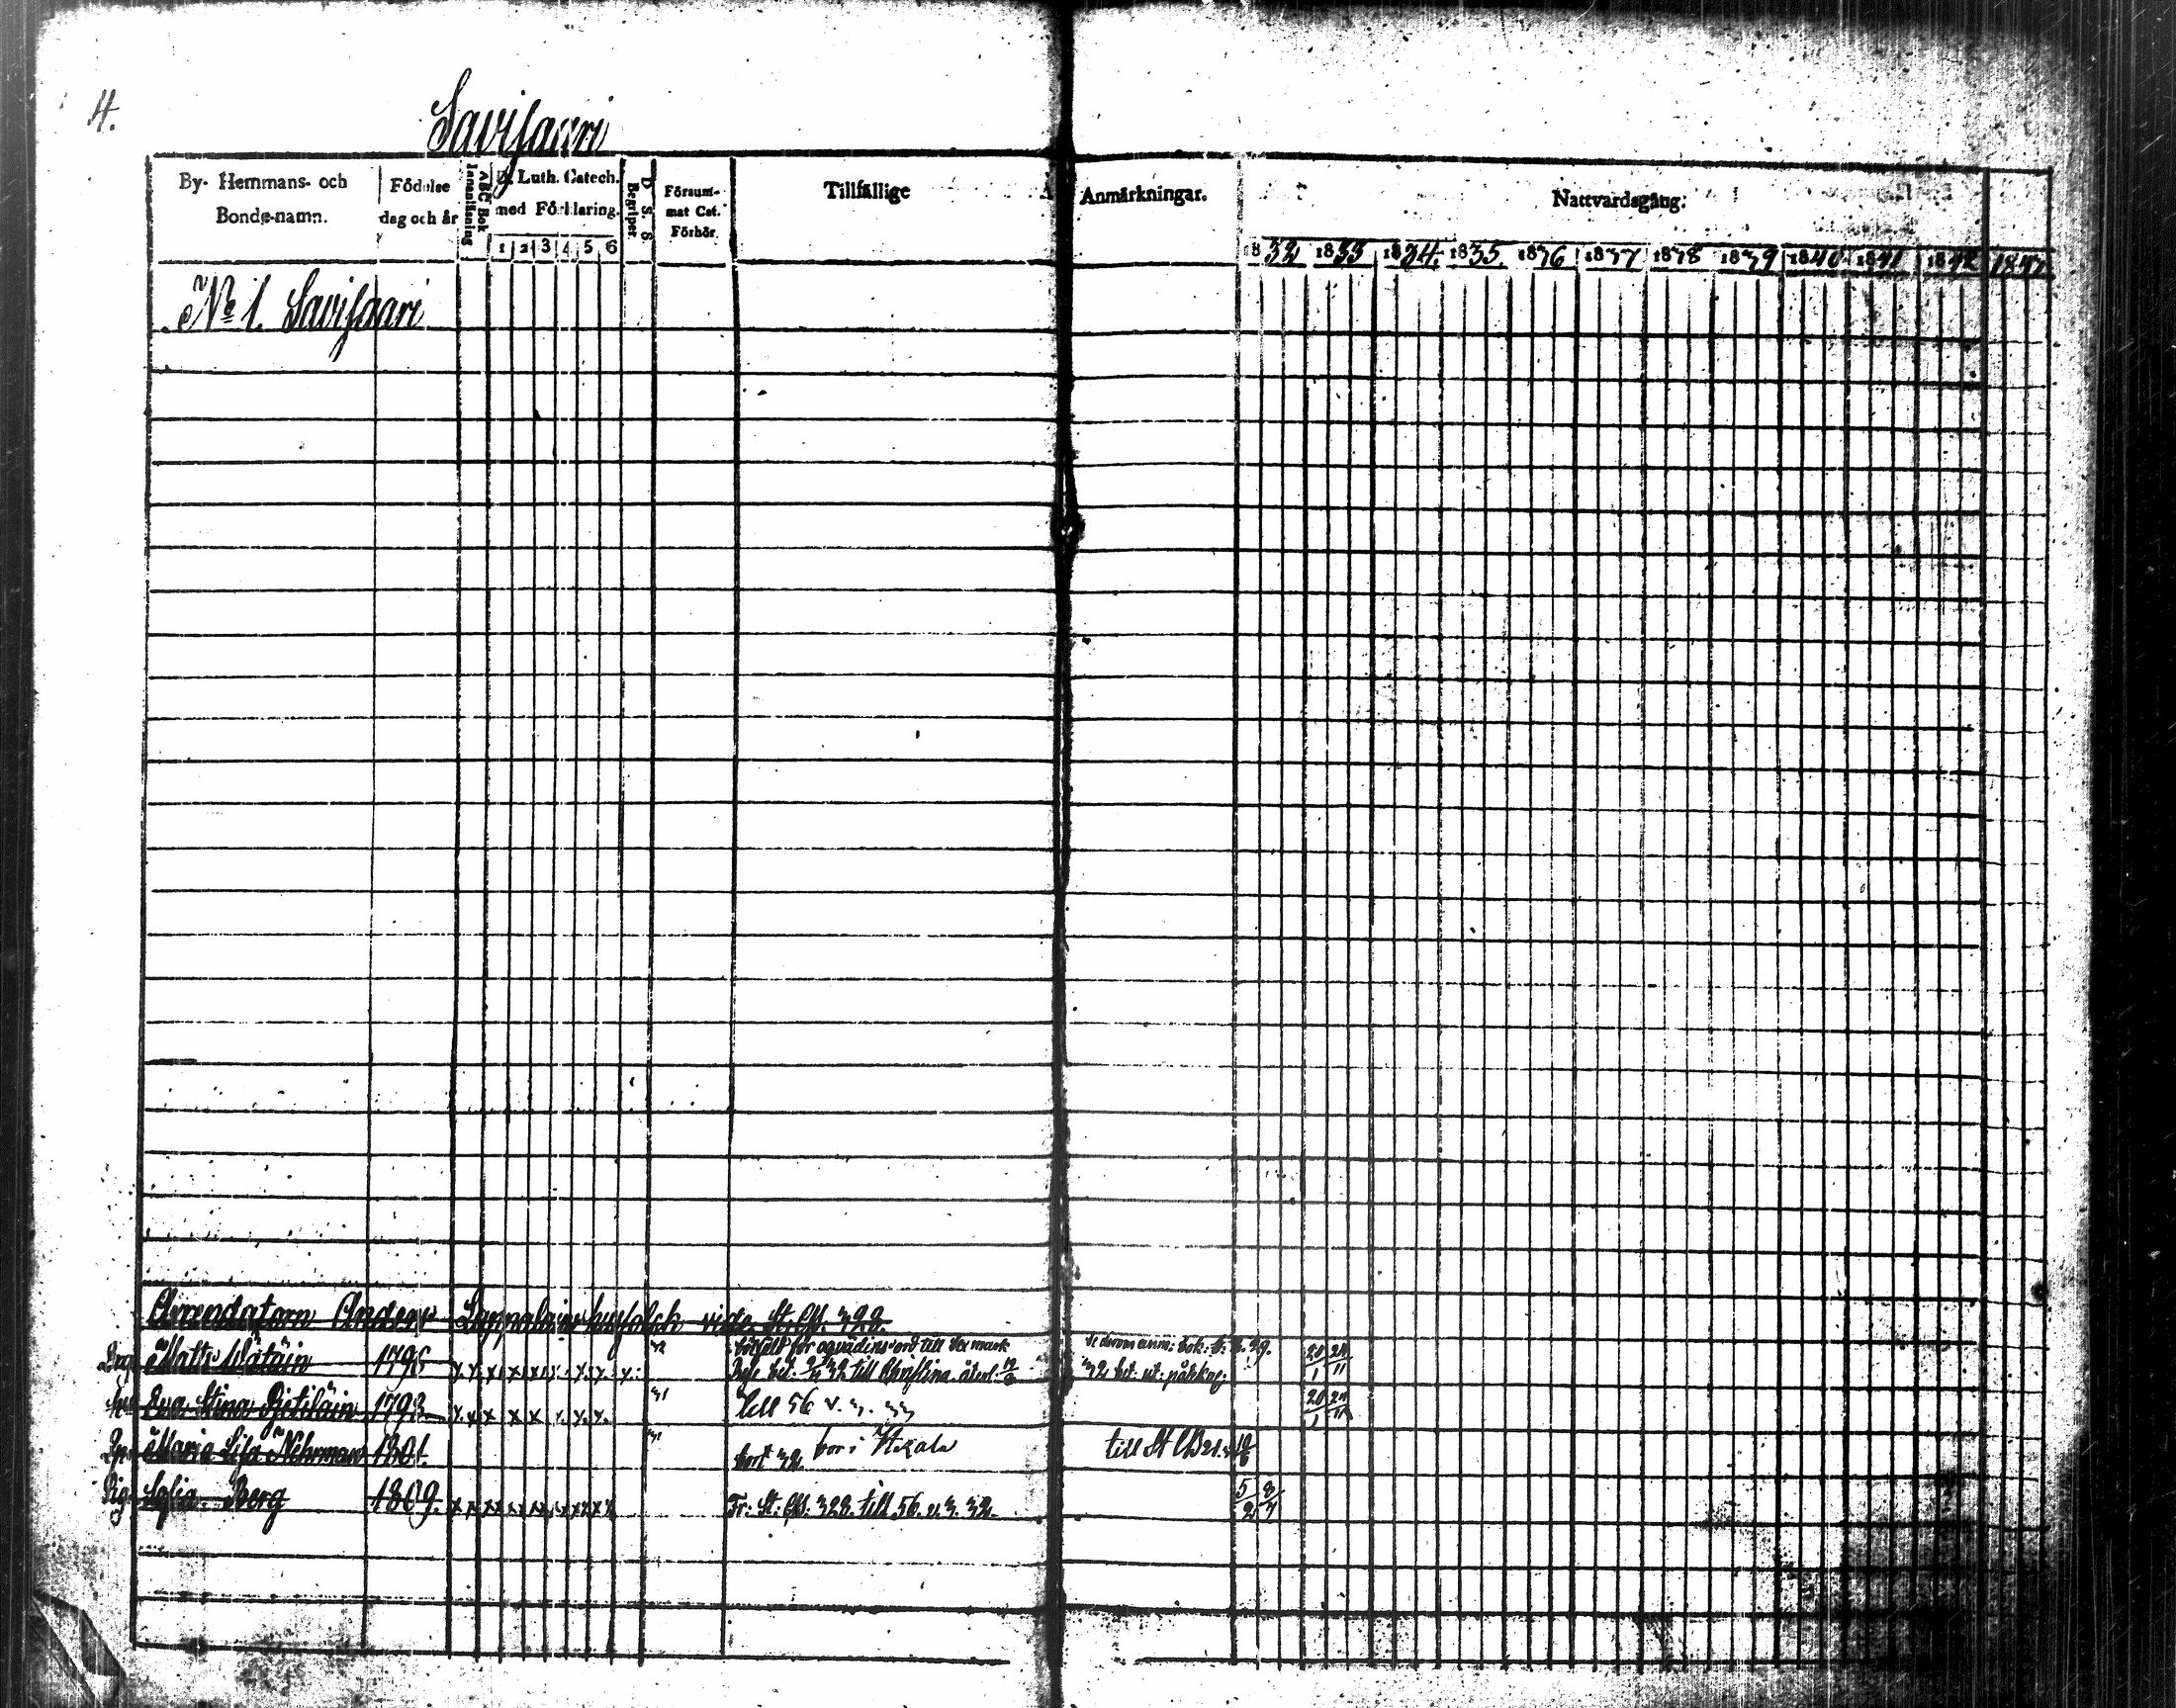 4.
Savisaari
By- Hemmans- och Bonde-namn.
Födelse dag och år
ABC Bok Innanläsning
D. Luth. Catech. med Förklaring.
1 2 3 4 5 6
D. S. S Begriper
Försum- mat Cat. Förhör.
Tillfällige Anmärkningar.
Nattvardsgång.
1832 1833 1834. 1835. 1836 1837 1838 1839 1840 1841 1842 1843
No 1. Savisaari
Arrendatorn Anders Lappalains husfolck vide St. CB. 322.
Matts Wätäin 1795 x x x x x x x x x 32
till Christina återl.
20/1 24/11
Eva Stina Pietiläin 1793 x x x x x x x x 31 till 56 v. 3. 33 20/1 24/11
Maria Lisa Nehrman 1801. 31 bort 32. bor i
till St CB 21.
Pig. Sofia Berg 1809. x x x x x x x x x x Fr: St: CB: 322. till 56. v. 3. 32. 5/2 8/7